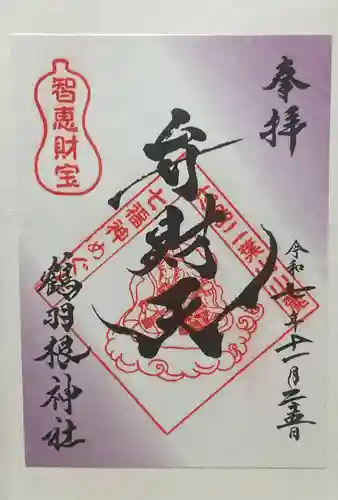 奉拝
令和七年十一月二十五日
弁財天
七福神めぐり
智恵財宝
鶴羽根神社